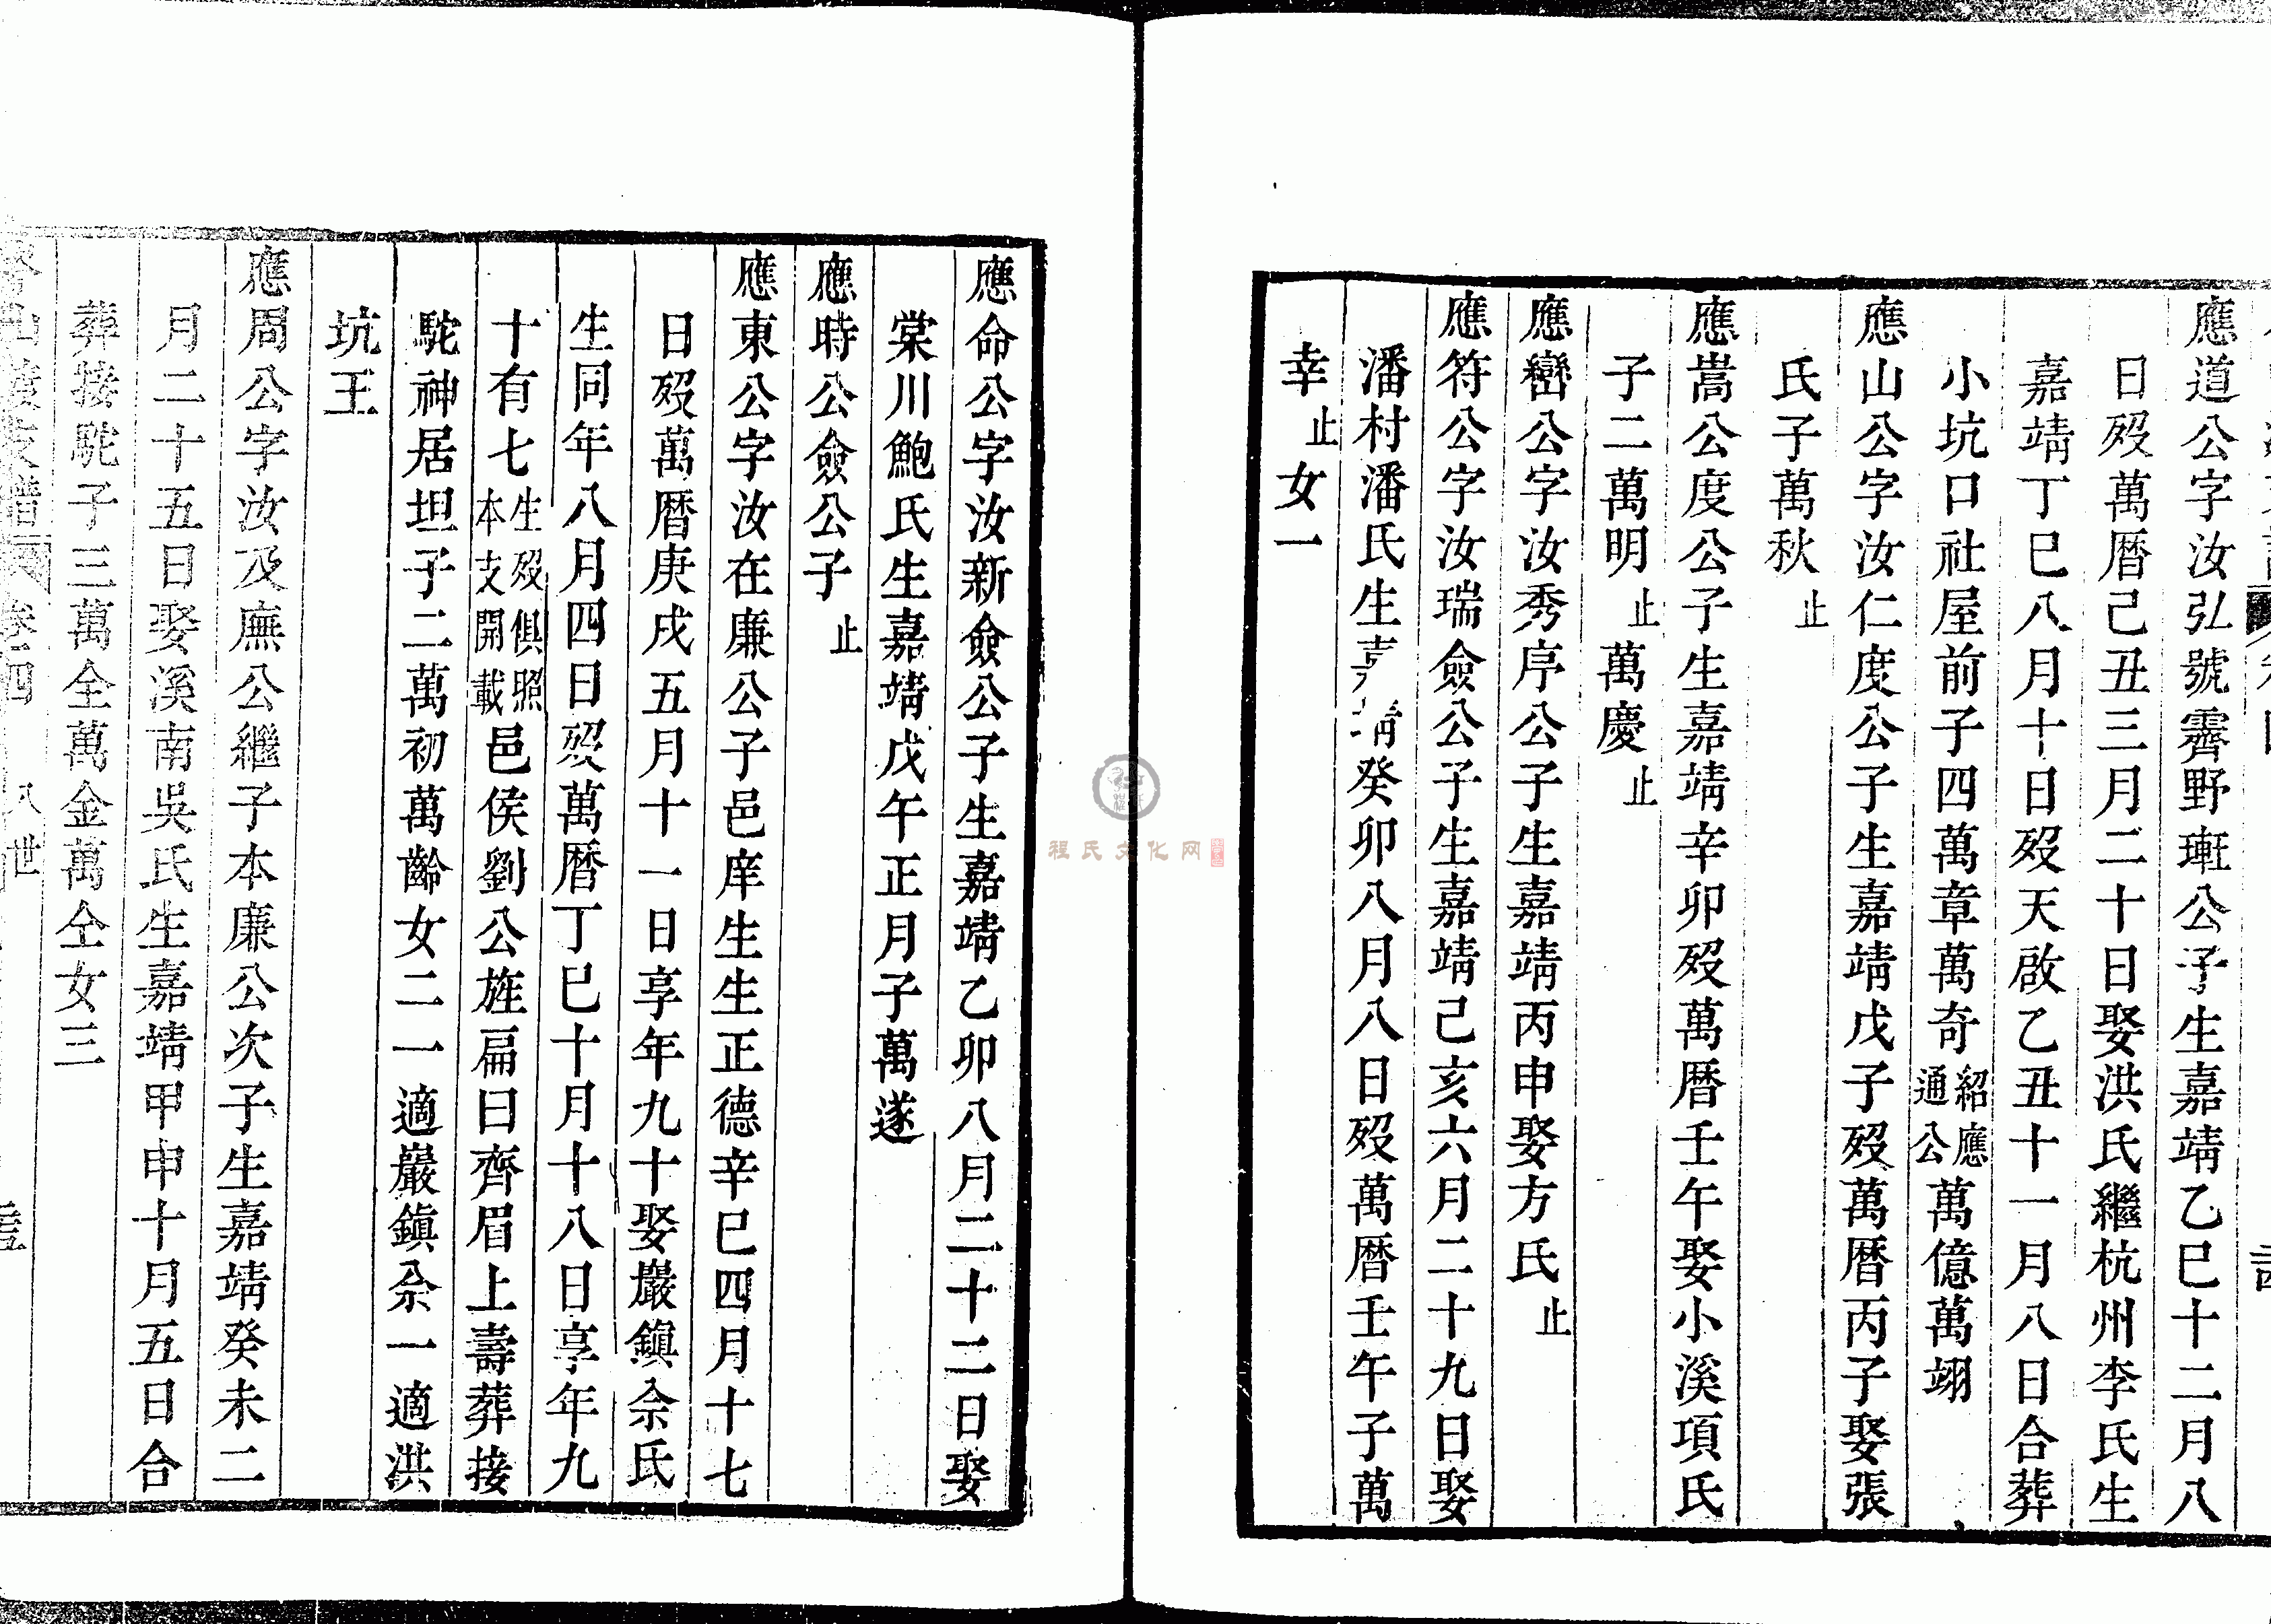 應道公字汝弘號霽野珊公子生嘉靖乙巳十二月八
日歿萬曆己丑三月二十日娶洪氏繼杭州李氏生
嘉靖丁巳八月十日歿天啟乙丑十一月八日合葬
小坑口社屋前子四萬章萬奇紹應通公萬億萬翊
應山公字汝仁度公子生嘉靖戊子歿萬曆丙子娶張
氏子萬秋止
應嵩公度公子生嘉靖辛卯歿萬曆壬午娶小溪項氏
子二萬明止萬慶止
應巒公字汝秀序公子生嘉靖丙申娶方氏止
應符公字汝瑞僉公子生嘉靖己亥六月二十九日娶
潘村潘氏生嘉靖癸卯八月八日歿萬曆壬午子萬
幸止女一
應命公字汝新僉公子生嘉靖乙卯八月二十二日娶
棠川鮑氏生嘉靖戊午正月子萬遂
應時公僉公子止
應東公字汝在廉公子邑庠生生正德辛巳四月十七
日歿萬曆庚戌五月十一日享年九十娶巖鎮佘氏
生同年八月四日歿萬曆丁巳十月十八日享年九
十有七生歿俱照本支開載邑侯劉公旌扁曰齊眉上壽葬接
駝神居坦子二萬初萬齡女二一適巖鎮佘一適洪
坑王
應周公字汝及廡公繼子本廉公次子生嘉靖癸未二
月二十五日娶溪南吳氏生嘉靖甲申十月五日合
葬接駝子三萬全萬金萬仝女三
支譜 卷四 八世
程氏文化网